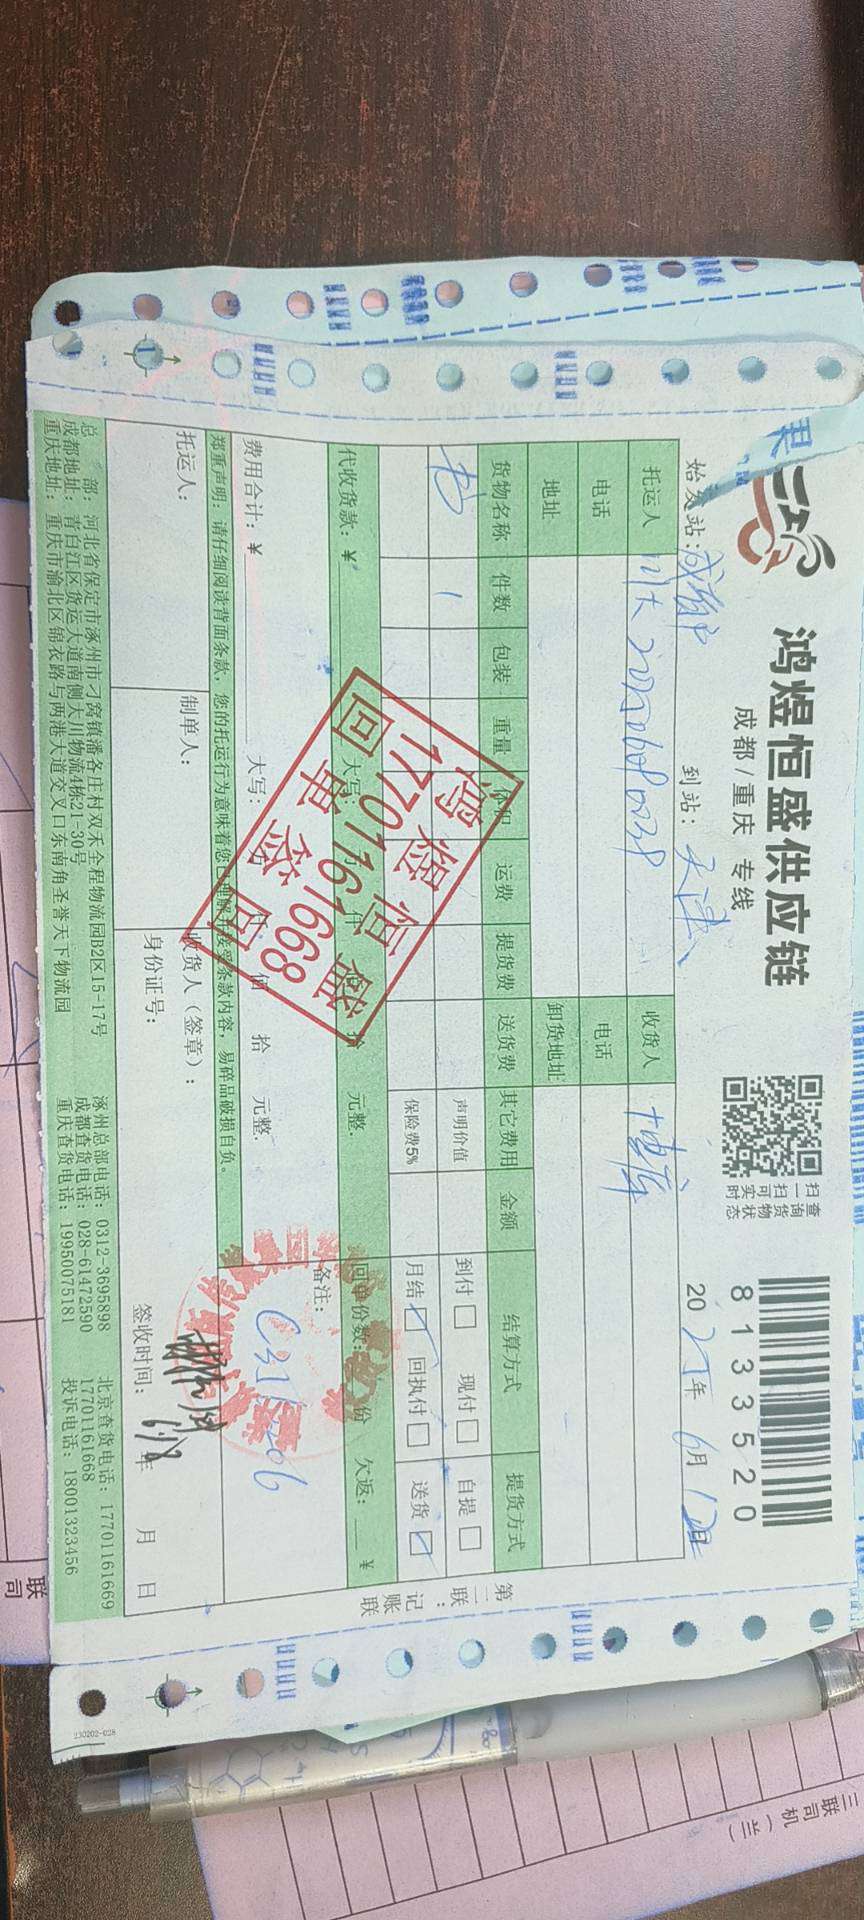 鸿煜恒盛供应链
成都/重庆 专线
扫一扫可实时
查询货物状态
8133520
始发站：成都 到站：天津 2025年6月12日
托运人 川大 收货人 博库
电话 电话
地址 卸货地址
货物名称 件数 包装 重量 体积 运费 提货费 送货费 其它费用 金额 结算方式 提货方式
书 1 声明价值 到付 现付 自提
保险费5% 月结 回执付 送货
代收货款：¥ 大写： 万 仟 拾 元整 回单份数： 份 欠返： ¥
费用合计：¥ 大写： 万 仟 佰 拾 元整 备注：
郑重声明：请仔细阅读背面条款，您的托运行为意味着您已理解并接受条款内容，易碎品破损自负。
托运人： 制单人： 收货人（签章）：
身份证号： 签收时间： 6/18 年 月 日
总 部：河北省保定市涿州市刁窝镇潘各庄村双禾全程物流园B2区15-17号 涿州总部电话：0312-3695898 北京查货电话：17701161669
成都地址：青白江区货运大道南侧大川物流4栋21-30号 成都查货电话：028-61472590 17701161668
重庆地址：重庆市渝北区锦衣路与两港大道交叉口东南角圣誉天下物流园 重庆查货电话：19950075181 投诉电话：18001323456
第二联：记账联
鸿煜恒盛
17701161668
回单签回
230202-028
三联司机（兰）
联
司